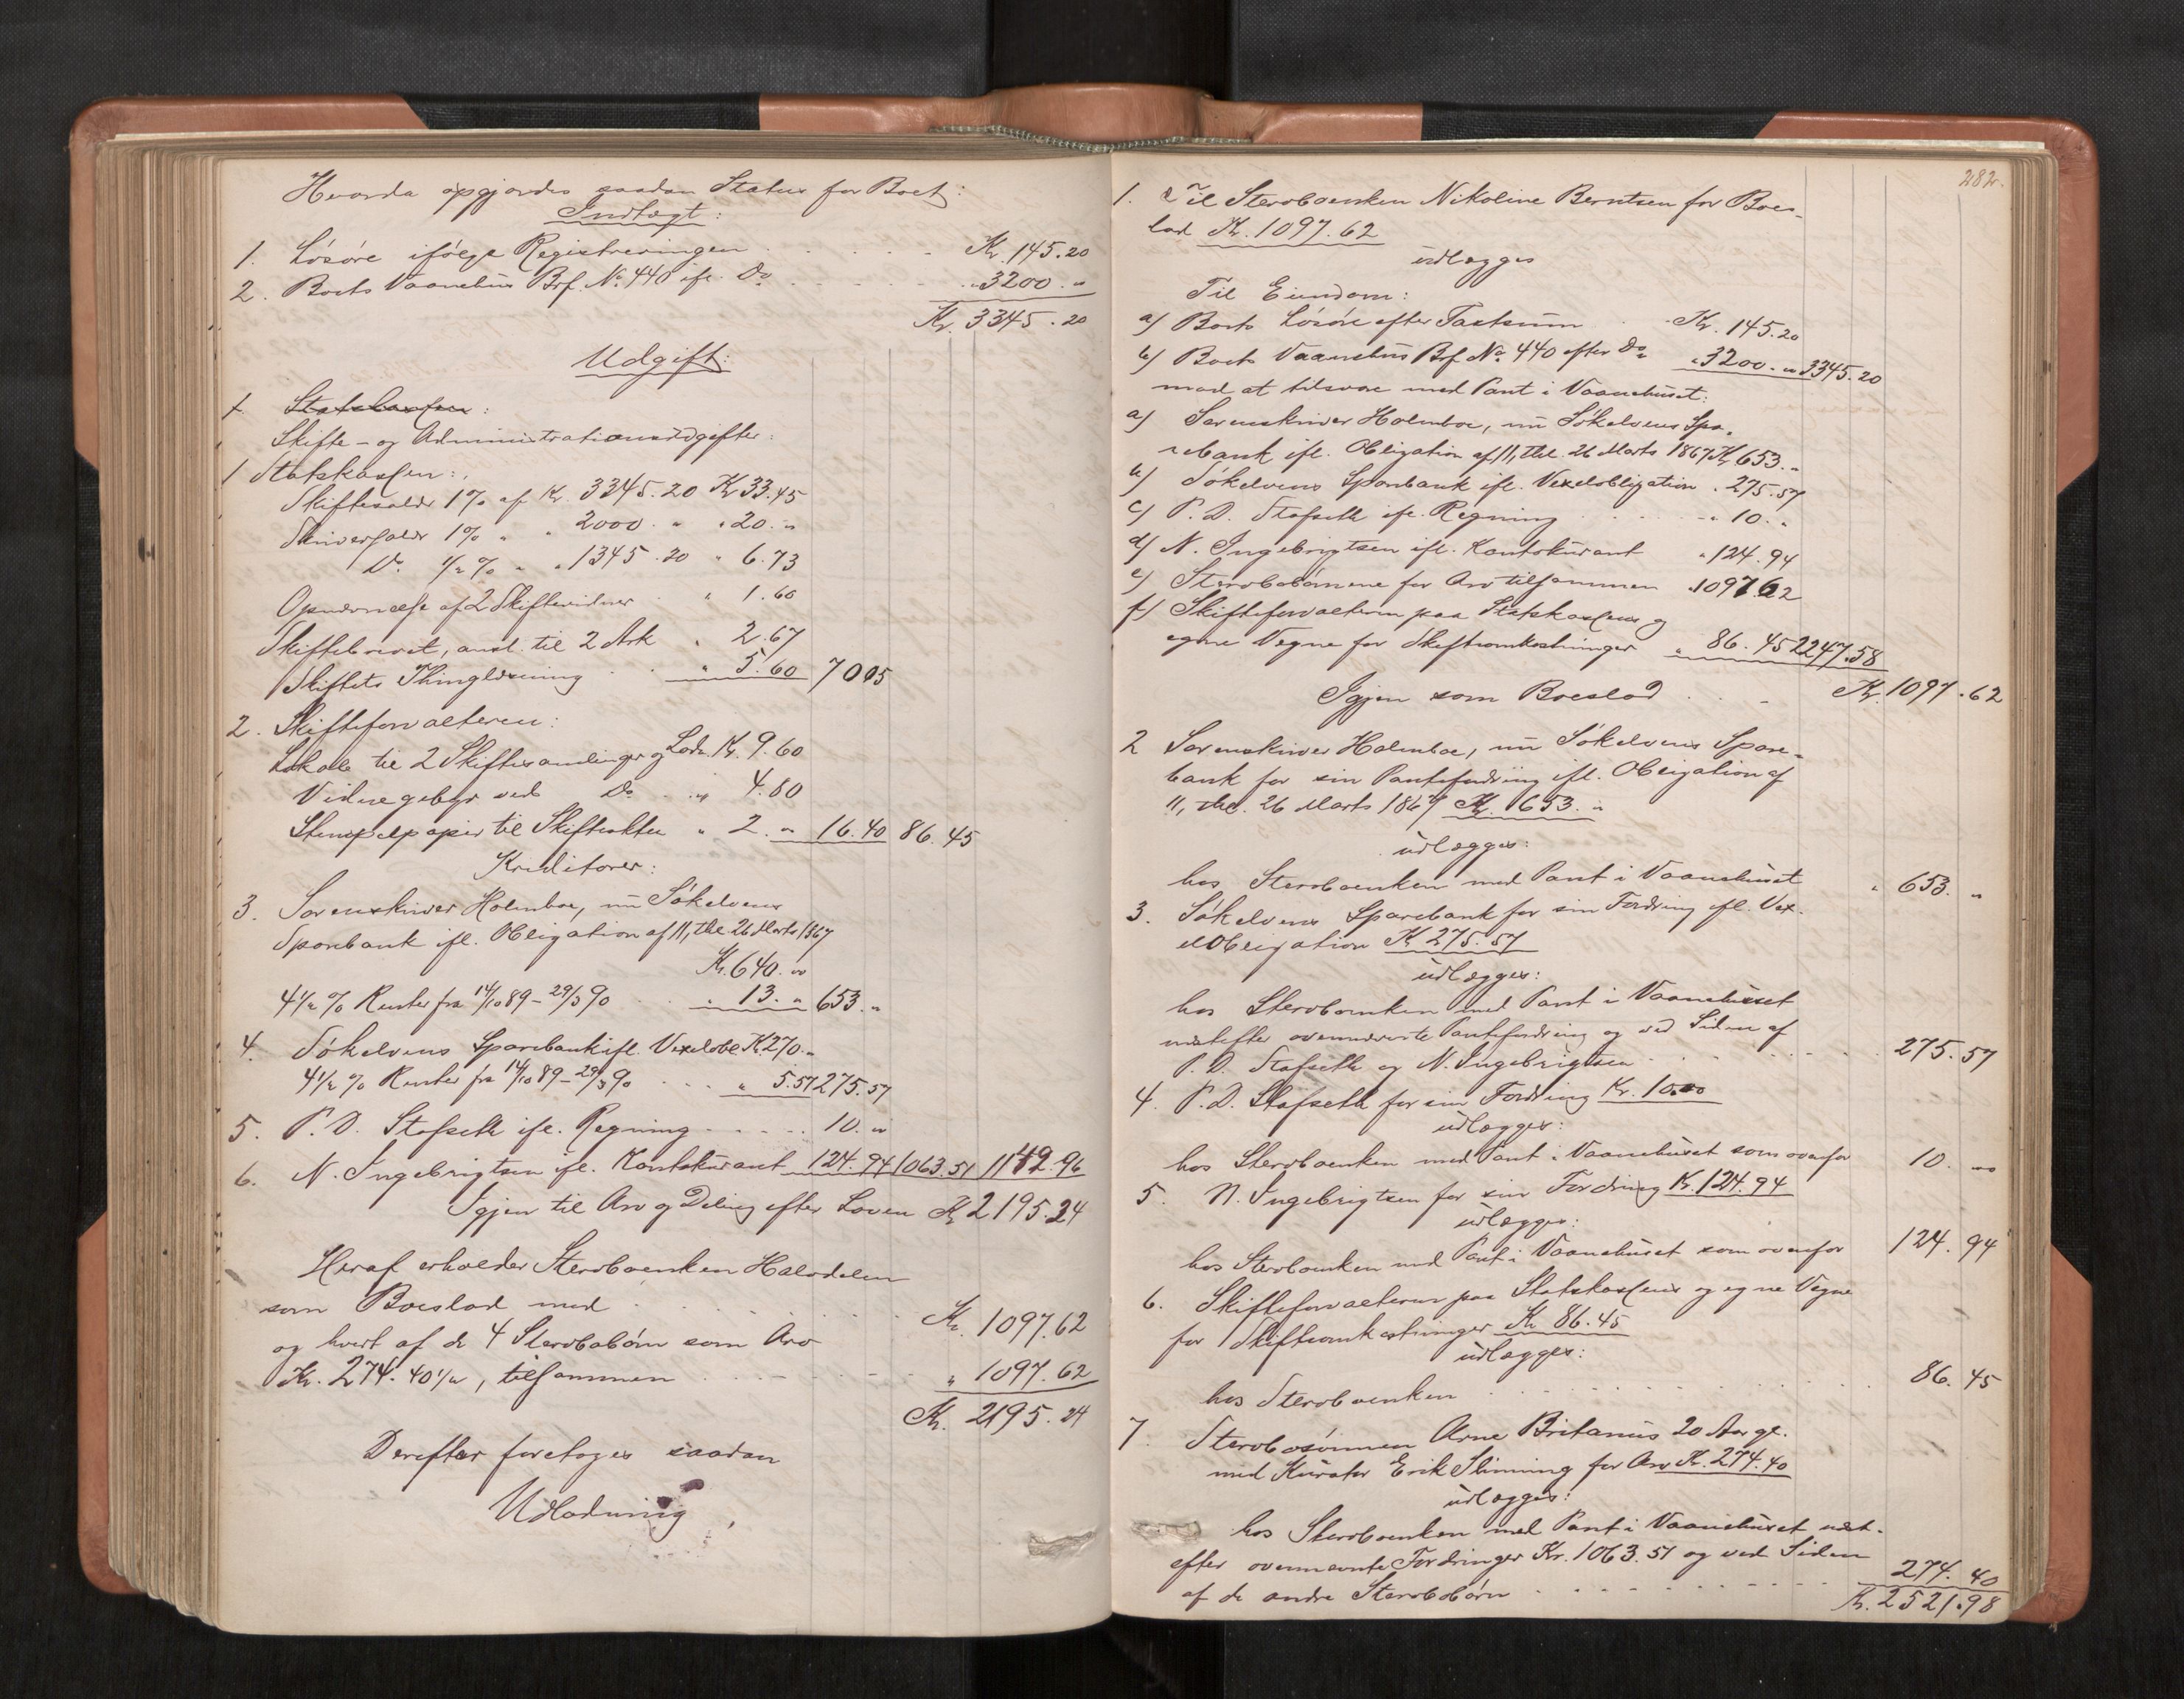 Hvorda opgjordes saadan Status for Boet:
Indtægt:
1. Løsøre ifølge Registreringen . . . . . Kr. 145.20
2. Boets Vaanehus Brf. No. 440 ifl. Do . . . . . " 3200. "
Kr. 3345.20
Udgift:
1. Statskassen:
Skifte- og Administrationsudgifter:
1 Statskassen:
Skiftesalær 1% af Kr. 3345.20 Kr 33.45
Skriversalær 1% " " 2000. " " 20. "
Do. 1/2 % " " 1345.20 " 6.73
Opnævnelse af 2 Skiftevidner . " 1.60
Skiftebrevet, ansl. til 2 Ark . " 2.67
Skiftets Thinglæsning . . " 5.60 70 05
2. Skifteforvalteren:
Lokale til 2 Skiftesamlinger og Lodn. Kr. 9.60
Vidnegebyr ved Do . . " 4.80
Stempelpapir til Skifteakten " 2. " 16.40 86.45
Kreditorer:
3. Sorenskriver Holmboe, nu Søkelvens
Sparebank ifl. Obligation af 11, thl. 26 Marts 1867
Kr. 640. "
4 1/2 % Renter fra 14/10 89 - 29/3 90 . . " 13. " 653. "
4. Søkelvens Sparebank ifl. Vexelobl. Kr 270. "
4 1/2 % Renter fra 14/10 89 - 29/3 90 . . . " 5.57 275.57
5. P. D. Stafseth ifl. Regning . . . . . 10. "
6. N. Ingebrigtsen ifl. Kontokurant 124.94 1063.51 1149.96
Igjen til Arv og Deling efter Loven Kr 2195.24
Heraf erholder Sterboenken Halvdelen
som Boeslod med . . . . . . . . Kr. 1097.62
og hvert af de 4 Sterbobørn som Arv
Kr. 274.40 1/2, tilsammen . . . . . . " 1097.62
Kr. 2195.24
Derefter foretoges saadan
Udlodning
282.
1. Til Sterboenken Nikoline Berntsen for Boes-
lod Kr. 1097.62
udlægges
Til Eiendom:
a) Boets Løsøre efter Taxtsum . . Kr. 145.20
b) Boets Vaanehus Brf. No. 440 efter Do " 3200. " 3345.20
mod at tilsvare med Pant i Vaanehuset:
a) Sorenskriver Holmboe, nu Søkelvens Spa-
rebank ifl. Obligation af 11, thl. 26 Marts 1867 Kr 653. "
b) Søkelvens Sparebank ifl. Vexelobligation " 275.57
c) P. D. Stafseth ifl. Regning . . . . . " 10. "
d) N. Ingebrigtsen ifl. Kontokurant " 124.94
e) Sterbobørnene for Arv tilsammen " 1097.62
f) Skifteforvalteren paa Statskassens og
egne Vegne for Skifteomkostninger " 86.45 2247.58
Igjen som Boeslod . . . Kr. 1097.62
2 Sorenskriver Holmboe, nu Søkelvens Spare-
bank for sin Pantefordring ifl. Obligation af
11, thl. 26 Marts 1867 Kr. 653. "
udlægges:
hos Sterboenken med Pant i Vaanehuset " 653. "
3. Søkelvens Sparebank for sin Fordring ifl. Vex-
elobligation Kr 275.57
udlægges:
hos Sterboenken med Pant i Vaanehuset
næstefter ovennævnte Pantefordring og ved Siden af
P. D. Stafseth og N. Ingebrigtsen . . . . . . 275.57
4. P. D. Stafseth for sin Fordring Kr. 10.00
udlægges:
hos Sterboenken med Pant i Vaanehuset som ovenfor 10. "
5. N. Ingebrigtsen for sin Fordring Kr. 124.94
udlægges:
hos Sterboenken med Pant i Vaanehuset som ovenfor 124.94
6. Skifteforvalteren paa Statskassens og egne Vegne
for Skifteomkostninger Kr 86.45
udlægges:
hos Sterboenken . . . . . . . . . 86.45
7. Sterbosønnen Arne Britanius 20 Aar gl.
med Kurator Erik Slinning for Arv Kr. 274.40
udlægges:
hos Sterboenken med Pant i Vaanehuset næst-
efter ovennævnte Fordringer Kr. 1063.51 og ved Siden
af de andre Sterbobørn . . . . . . . . 274.40
Kr. 2521.98